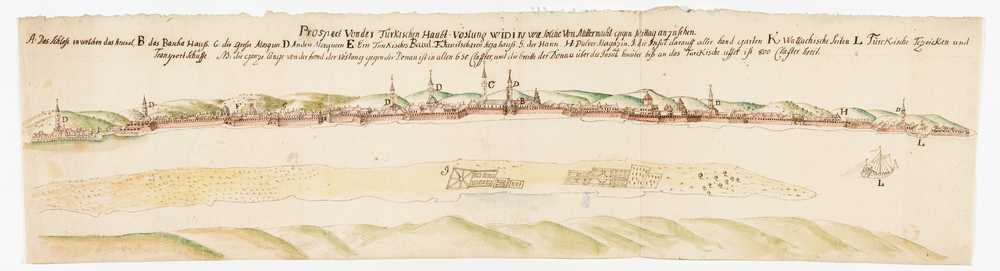 Prospect Von der Türkischen Haubt Vöstung WIDIN wie solche Von Mitternacht gegen Mittag anzusehen.
A. Das Schloß in welchen das Arsenal, B das Bascha Hauß. C. die große Mosquee D. Andere Mosqueen E. Ein Türckisches Baad. F. Janitscharen Aga hauß. G. der Hann. H. Pulver Magazin. I. die Insul darauff aller hand garten K. Wallachische Seiten L. Türckische Tscheicken und
Transport Schiffe. NB. die ganze länge von der hand der Vöstung gegen der Donau ist in allen 650 Claffter, und die breite der Donau über die Insul hinüber biß an das Türckische uffer ist 800 Claffter breit.
D D F D D C D B D H D
L
J
L